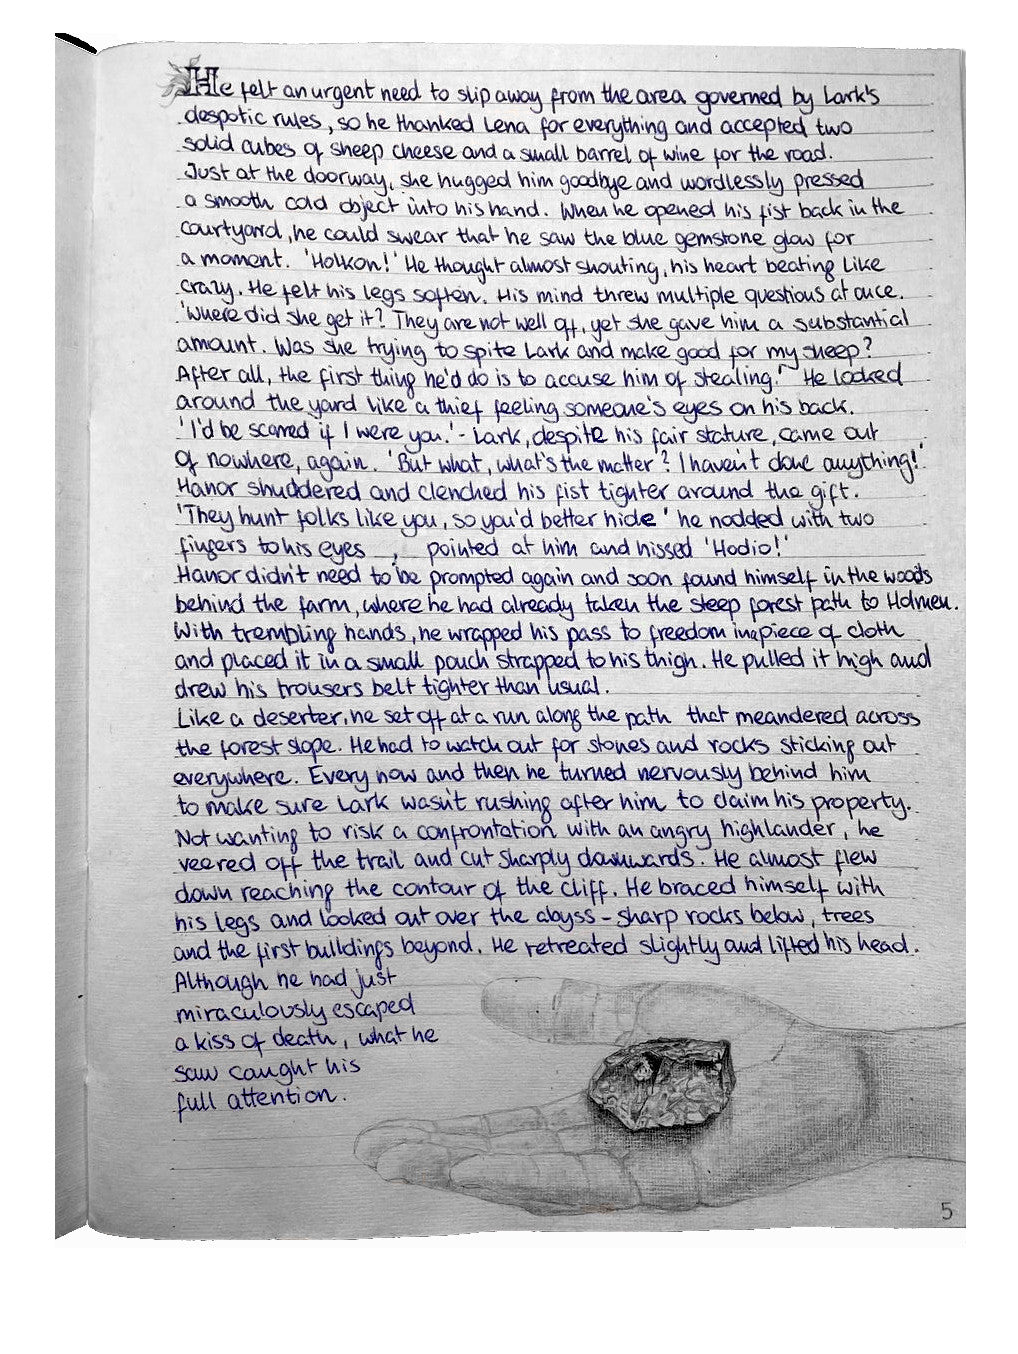 He felt an urgent need to slip away from the area governed by Lark's
despotic rules, so he thanked Lena for everything and accepted two
solid cubes of sheep cheese and a small barrel of wine for the road.
Just at the doorway, she hugged him goodbye and wordlessly pressed
a smooth cold object into his hand. When he opened his fist back in the
courtyard, he could swear that he saw the blue gemstone glow for
a moment. 'Holkon!' He thought almost shouting, his heart beating like
crazy. He felt his legs soften. His mind threw multiple questions at once.
'Where did she get it? They are not well off, yet she gave him a substantial
amount. Was she trying to spite Lark and make good for my sheep?
After all, the first thing he'd do is to accuse him of stealing!' He looked
around the yard like a thief feeling someone's eyes on his back.
'I'd be scarred if I were you.' - Lark, despite his fair stature, came out
of nowhere, again. 'But what, what's the matter'? I haven't done anything!'
Hanor shuddered and clenched his fist tighter around the gift.
'They hunt folks like you, so you'd better hide' he nodded with two
fingers to his eyes , pointed at him and hissed 'Hodio!'
Hanor didn't need to be prompted again and soon found himself in the woods
behind the farm, where he had already taken the steep forest path to Holmen.
With trembling hands, he wrapped his pass to freedom in a piece of cloth
and placed it in a small pouch strapped to his thigh. He pulled it high and
drew his trousers belt tighter than usual.
Like a deserter, he set off at a run along the path that meandered across
the forest slope. He had to watch out for stones and rocks sticking out
everywhere. Every now and then he turned nervously behind him
to make sure Lark wasn't rushing after him to claim his property.
Not wanting to risk a confrontation with an angry highlander, he
veered off the trail and cut sharply downwards. He almost flew
down reaching the contour of the cliff. He braced himself with
his legs and looked out over the abyss - sharp rocks below, trees
and the first buildings beyond. He retreated slightly and lifted his head.
Although he had just
miraculously escaped
a kiss of death, what he
saw caught his
full attention.
5